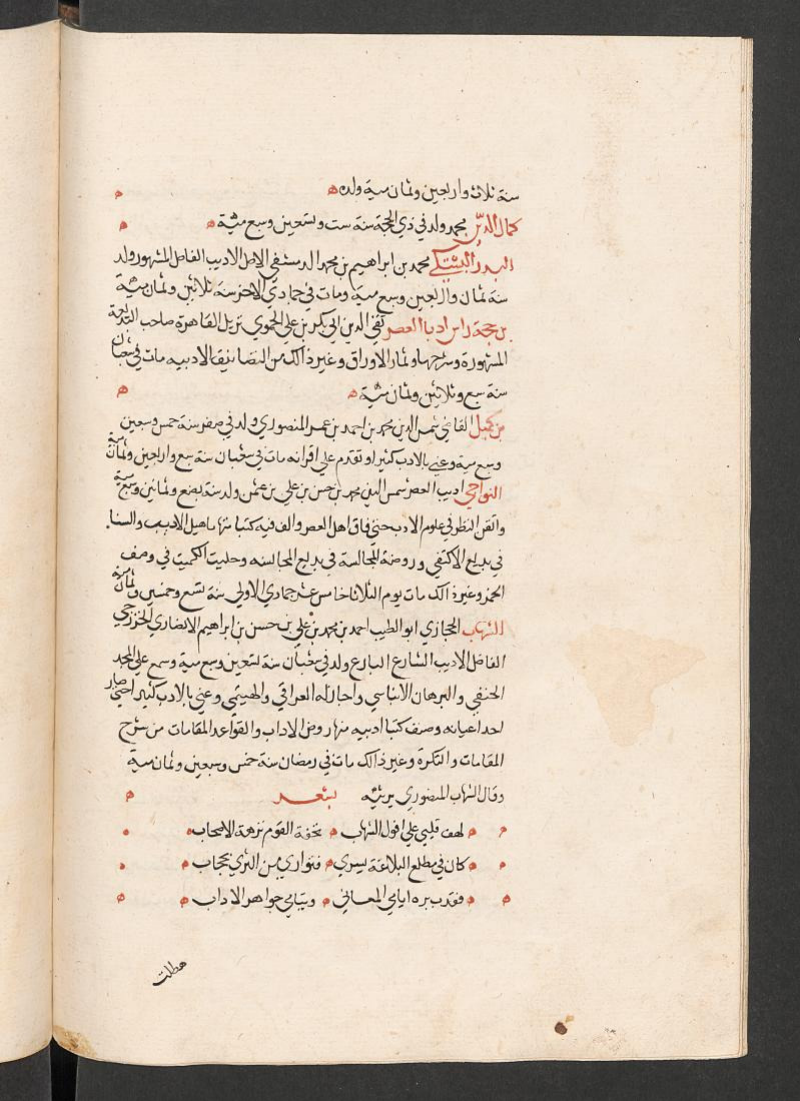 سنة ثلاث واربعين وثمان مية ولده
كمال الدين محمد ولد في ذي الحجة سنة ست وتسعين وسبع مئية
البدر البشتكي محمد بن ابراهيم بن محمد الدمشقي الاصل الاديب الفاضل المشهور ولد
سنة ثمان واربعين وسبع مية ومات في جمادي الاخر سنة ثلاثين وثمان مئية
بن حجة راس ادبا العصر تقي الدين ابي بكر بن علي الحموي نزيل القاهرة صاحب البديعية
المشهورة وشرحها وثمار الاوراق وغير ذالك من التصانيف الادبيه مات في شعبان
سنة سبع وثلاثين وثمان مئية
بن كميل القاضي شمس الدين محمد بن احمد بن عمر المنصوري ولد في صفر سنة خمس وسبعين
وسبع مية وعني بالادب كثيرا وتقدم علي اقرانه مات في شعبان سنة سبع واربعين وثمان مية
النواجي اديب العصر شمس الدين محمد بن حسن بن علي بن عثمن ولد سنة بضع وثمانين وسبع مية
واتقن النظر في علوم الادب حتي فاق اهل العصر والف فيه كتبا منها تاهيل الاديب والسنا
في بديع الاكتفي وروضة المجالسة في بديع المجانسه وحليت الكميت في وصف
الخمر وغير ذالك مات يوم الثلاثا خامس عشر جمادي الاولي سنة تسع وخمسين وثمان مية
الشهاب الحجازي ابو الطيب احمد بن محمد بن علي بن حسن بن ابراهيم الانصاري الخزرجي
الفاضل الاديب الشارع البارع ولد في شعبان سنة تسعين وسبع مية وسمع علي المجد
الحنفي والبرهان الانباسي واجاز له العراقي والهيثمي وعني بالادب كثيرا حتي صار
احد اعيانه وصنف كتبا ادبيه منها روض الاداب والقواعد المقامات من شرح
المقامات والتذكرة وغير ذالك مات في رمضان سنة خمس وسبعين وثمان مية
وقال الشهاب المنصوري يرثيه شعر
لهف قلبي علي افول الشهاب تحفة القوم نزهة الاصحاب
كان في مطلع البلاغة يسري فتواري من الثري بحجاب
فقدت بره ايامي المعاني ويتامي جواهر الاداب
هطلت